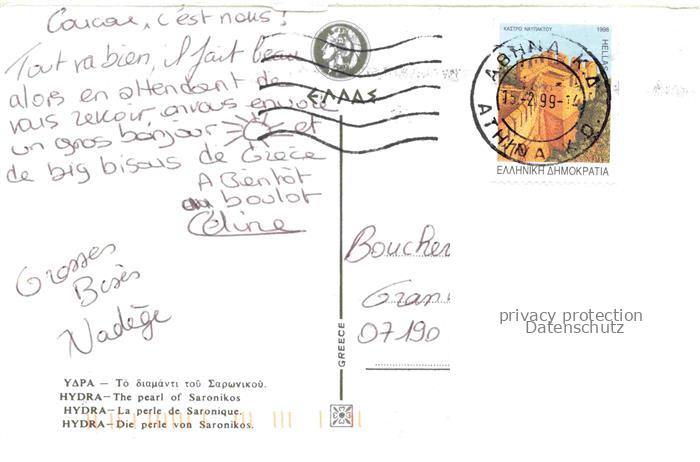 Coucou, c'est nous!
Tout va bien, il fait beau
alors en attendant de
vous revoir, on vous envoie
un gros bonjour et
de big bisous de Grèce
A Bientôt
au boulot
Céline
Grosses
Bises
Nadège
ΕΛΛΑΣ
ΚΑΣΤΡΟ ΝΑΥΠΑΚΤΟΥ 1998
HELLAS
ΑΘΗΝΑ Κ.Δ.
15.-2.99-14
ATHINA K.D.
ΕΛΛΗΝΙΚΗ ΔΗΜΟΚΡΑΤΙΑ
Boucher
Gran
07190
privacy protection
Datenschutz
GREECE
ΥΔΡΑ — Τὸ διαμάντι τοῦ Σαρωνικοῦ.
HYDRA—The pearl of Saronikos
HYDRA—La perle de Saronique.
HYDRA—Die perle von Saronikos.